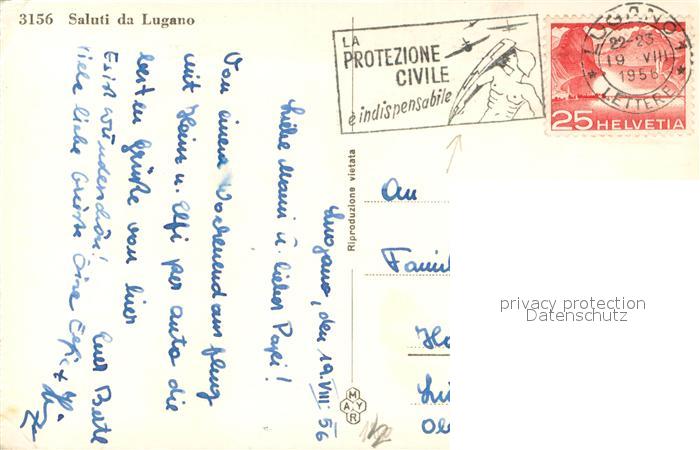 3156 Saluti da Lugano
LA
PROTEZIONE
CIVILE
è indispensabile
LUGANO 1
22-23
19 VIII
1956
LETTERE
25 HELVETIA
Lugano, den 19.VIII.56
Liebe Mami u. lieber Papi!
Von einem Wochenendausflug
mit Heinz u. Elfi per Auto die
besten Grüße von hier
Es ist wunderschön! Eure Beate
viele liebe Grüße Eure Elfi +
Riproduzione vietata
MAYR
An
Famil
privacy protection
Datenschutz